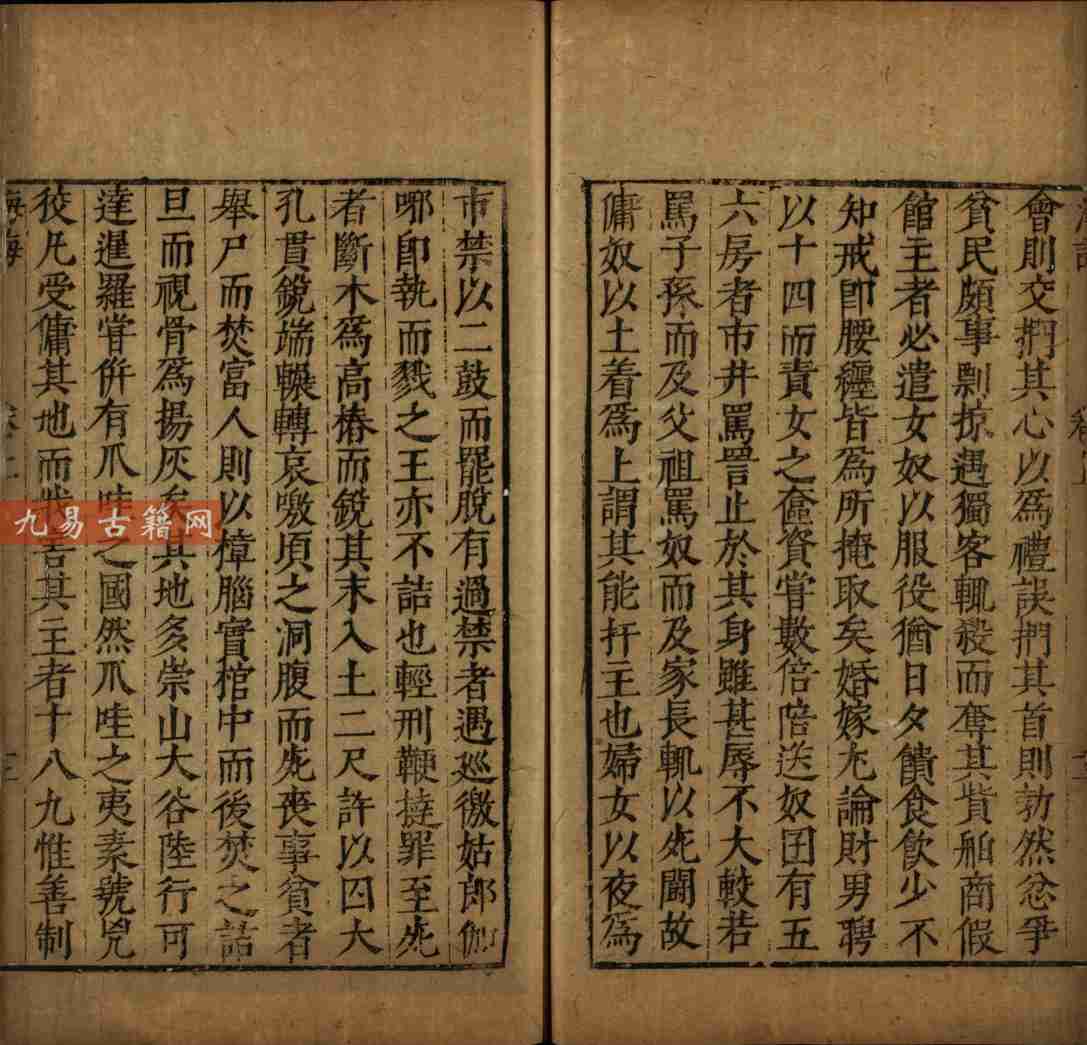 會則交捫其心以爲禮誤捫其首則勃然忿爭
貧民頗事剽掠遇獨客輒殺而奪其貲舶商假
館主者必遣女奴以服役猶日夕饋食飲少不
知戒卽腰纏皆爲所掩取矣婚嫁尤論財男聘
以十四而責女之奩資嘗數倍陪送奴囝有五
六房者市井罵詈止於其身雖甚辱不大較若
罵子孫而及父祖罵奴而及家長輒以死鬪故
傭奴以土着爲上謂其能扞主也婦女以夜爲
市禁以二鼓而罷脫有過禁者遇巡徼姑郎伽
哪卽執而戮之王亦不詰也輕刑鞭撻罪至死
者斷木爲高樁而銳其末入土二尺許以囚大
孔貫銳端輾轉哀噭頃之洞腹而死喪事貧者
舉尸而焚富人則以樟腦實棺中而後焚之詰
旦而視骨爲揚灰矣其地多崇山大谷陸行可
達暹羅嘗併有爪哇之國然爪哇之夷素號兇
狡凡受傭其地而戕害其主者十八九惟善制
九易古籍网